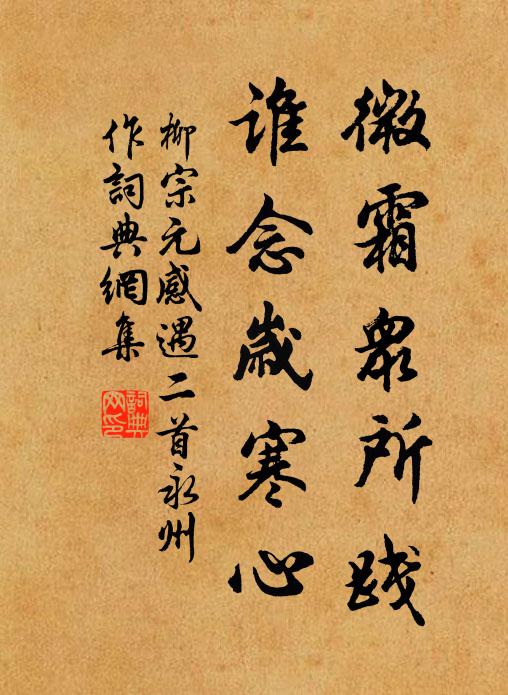 微霜眾所踐
誰念歲寒心
柳宗元感遇二首永州
作詞典網集
詞典
网印